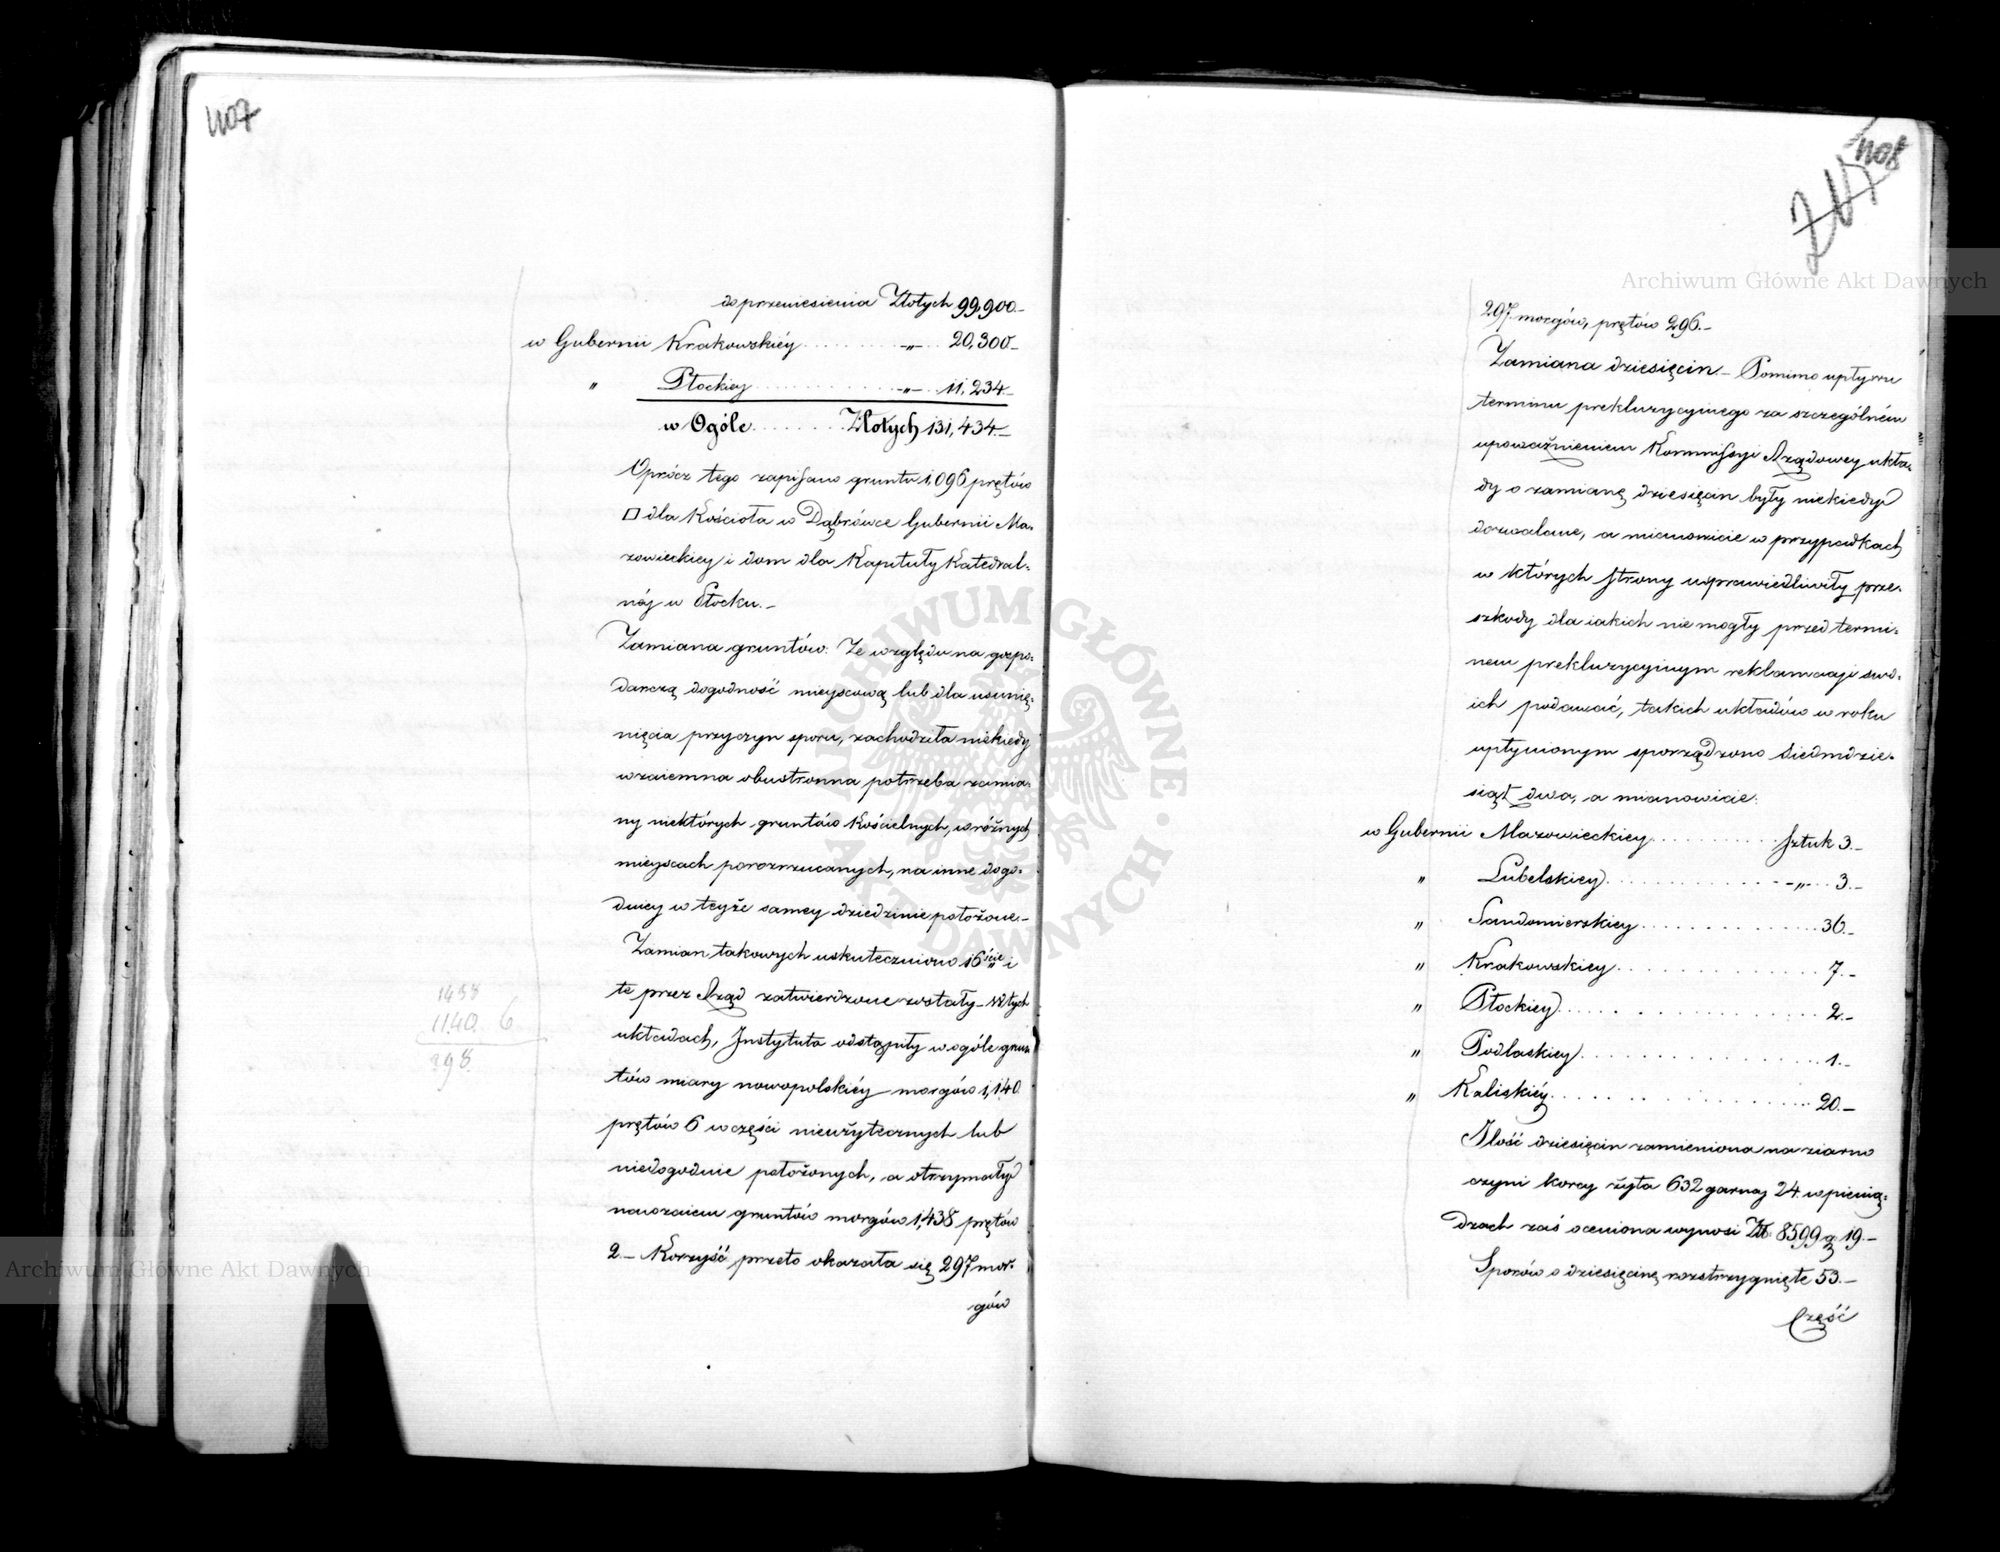 407
do przeniesienia Złotych 99,900.–
w Gubernii Krakowskiéy . . . . . . . . . –„– . . 20,300–
„ Płockiey . . . . . . . . . . . . –„– . . . 11,234.–
w Ogóle . . . . . . . . Złotych 131,434.–
Oprócz tego zapisano gruntu 1,096 prętów
□ dla Kościoła w Dąbrówce Gubernii Ma-
zowieckiey i dom dla Kapituły Katedral-
néj w Płocku.–
Zamiana gruntów: Ze względu na gospo-
darczą dogodność mieyscową lub dla usunię-
nięcia przyczyn sporu, zachodziła niekiedy
wzaiemna obustronna potrzeba zamia-
ny niektórych gruntów Kościelnych, w różnych
mieyscach porozrzucanych, na inne dogo-
dniey w teyże samey dziedzinie położone.–
Zamian takowych uskuteczniono 16ście i
te przez Rząd zatwierdzone zostały – W tych
układach, Instytuta odstąpiły w ogóle grun-
tów miary nowopolskiéy morgów 1,140
prętów 6 w części nieużytecznych lub
niedogodnie położonych, a otrzymały
nawzaiem gruntów morgów 1,438 prętów
2.– Korzyść przeto okazała się 297 mor-
gów
1438
1140. 6
298.
408
247
297. morgów, prętów 296.–
Zamiana dziesięcin – Pomimo upływu
terminu prekluzyciynego za szczególném
upoważnieniem Kommissyi Rządowey ukła-
dy o zamianę dziesięcin były niekiedy
dozwalane, a mianowicie w przypadkach
w których strony usprawiedliwiły prze-
szkody dla iakich nie mogły przed termi-
nem prekluzyciynym reklamacyi swo-
ich podawać, takich układów w roku
upłynionym sporządzono siedmdzie-
siąt dwa, a mianowicie:
w Gubernii Mazowieckiey . . . . . . . . . . Sztuk 3.–
„ Lubelskiey . . . . . . . . . . . . . –„– . . 3.–
„ Sandomierskiey . . . . . . . . . . . . . 36.–
„ Krakowskiey . . . . . . . . . . . . . . 7.–
„ Płockiey . . . . . . . . . . . . . 2.–
„ Podlaskiey . . . . . . . . . . . . . . 1.–
„ Kaliskiéy . . . . . . . . . . . . . . 20.–
Ilość dziesięcin zamieniona na ziarno
czyni korcy żyta 632 garncy 24. w pienią-
dzach zaś oceniona wynosi Złt: 8599 g 19.–
Sporów o dziesięcinę rozstrzygnięte 53.–
Część
Archiwum Główne Akt Dawnych
Archiwum Główne Akt Dawnych
ARCHIWUM GŁÓWNE · AKT DAWNYCH ·